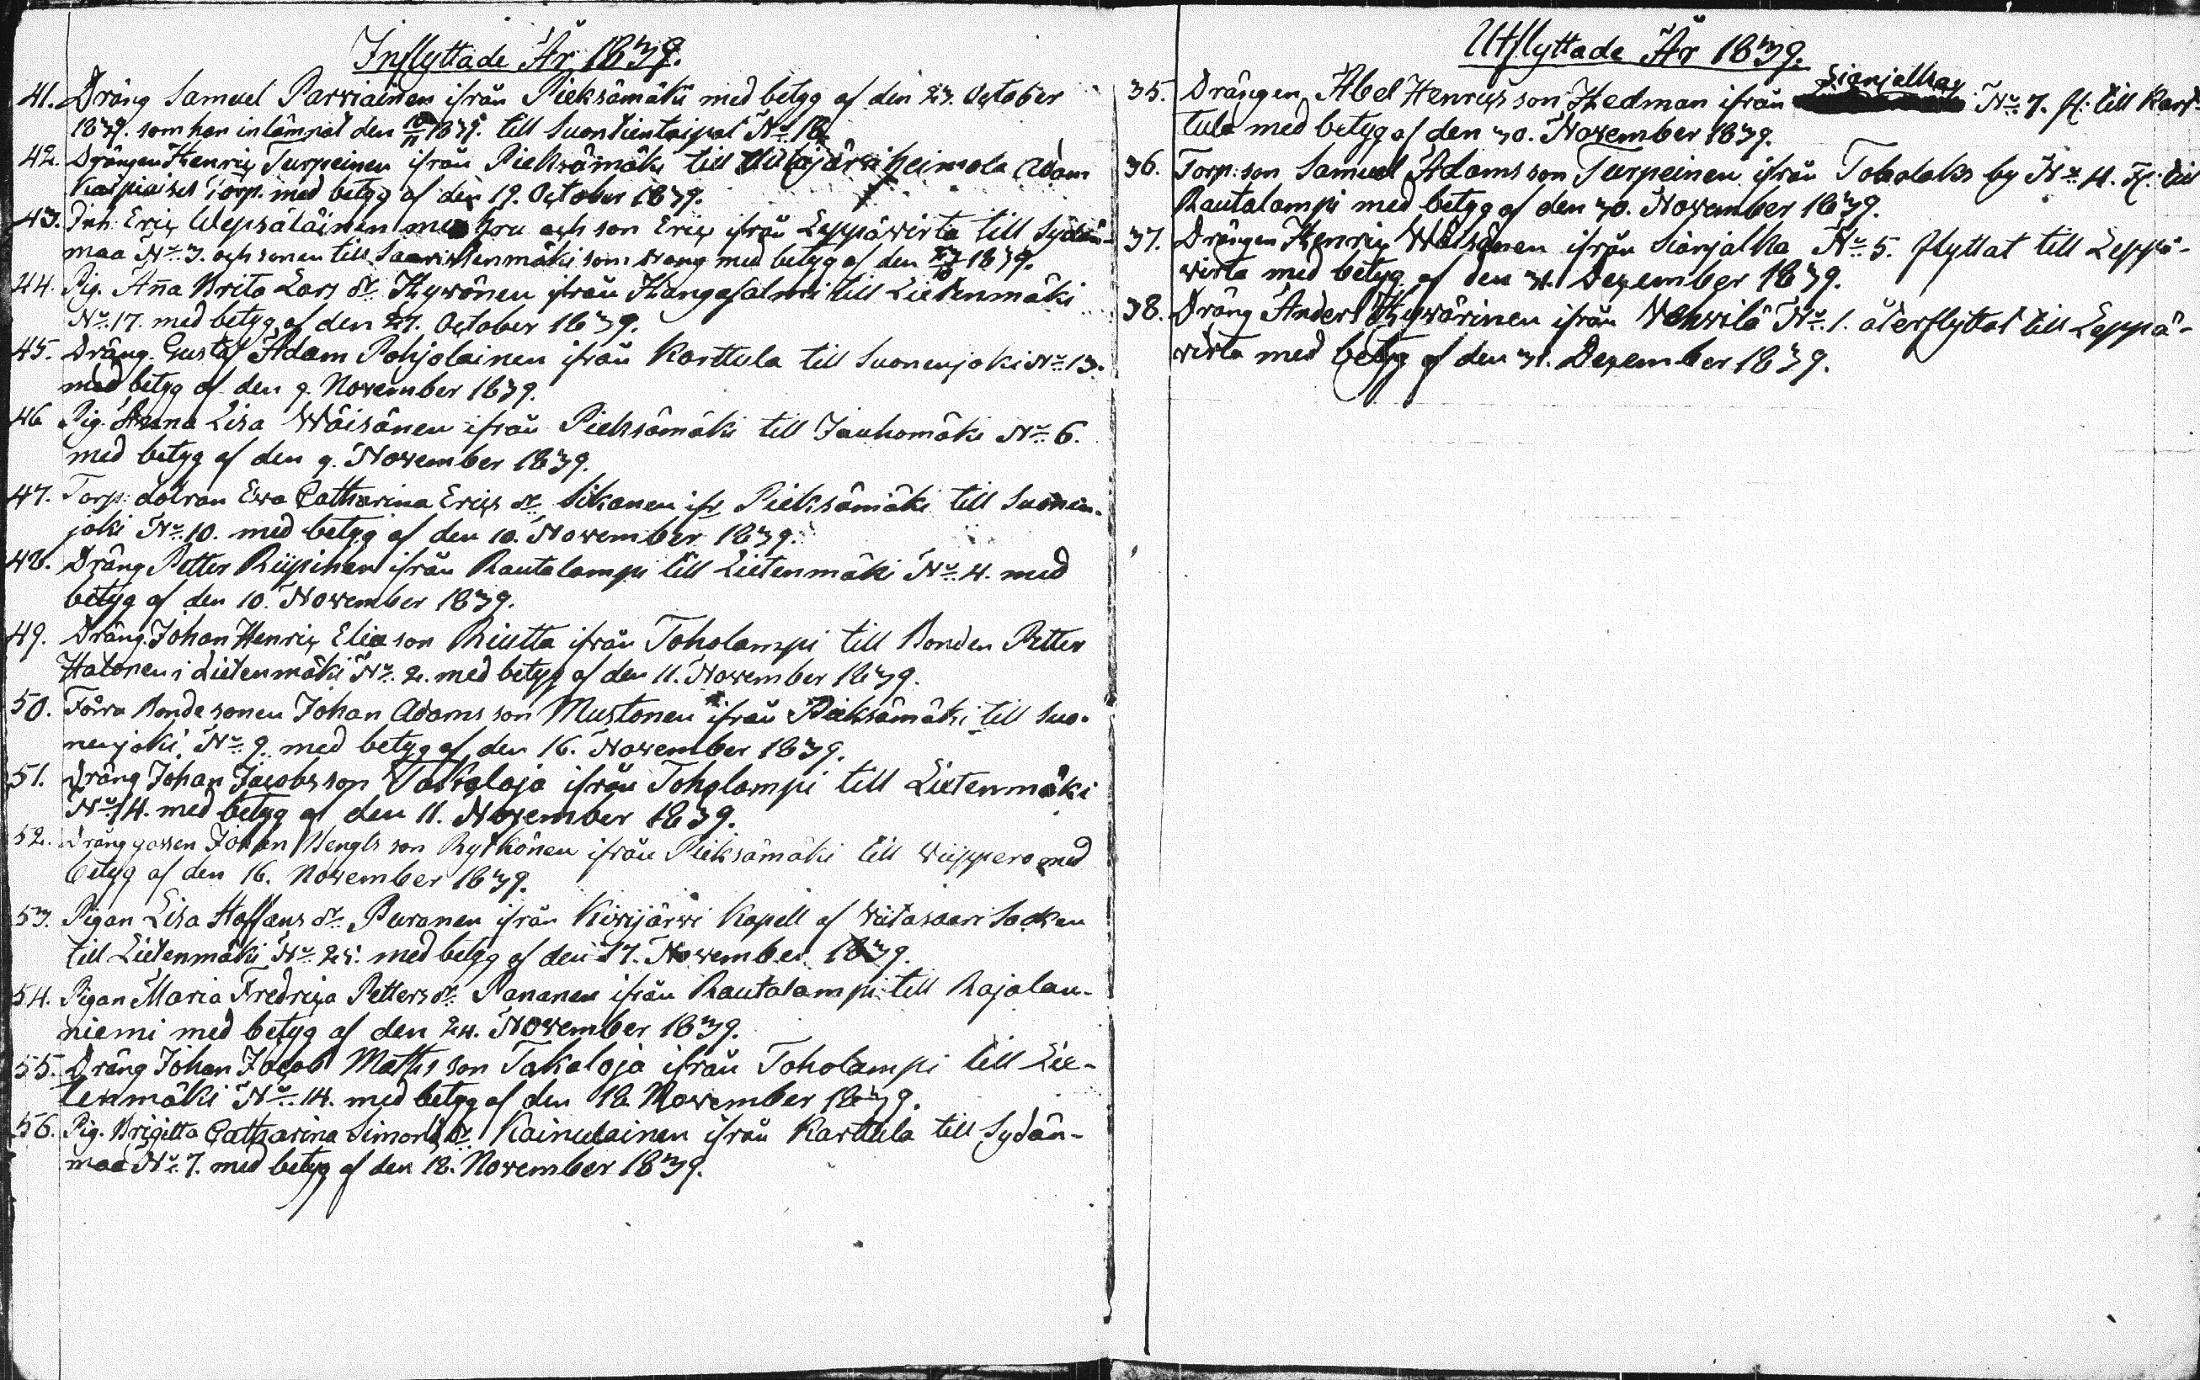 Inflyttade År 1839.
41. Dräng Samuel Parviainen ifrån Pieksämäki med betyg af den 23. October
1839. som han inlämnat den 1839. till Suontientaipal No 18.
42. Drängen Henric Turpeinen ifrån Pieksämäki till heimola Adam
Karpiaises Torp. med betyg af den 19. October 1839.
43. Inh. Eric Wepsäläinen med hru och son Eric ifrån Leppäwirta till Sydän-
maa No 3. och sonen till Saaristenmäki som med betyg af den 1839.
44. Pig. Anna Brita Lars dr Hywönen ifrån Kangasalmi till Lietenmäki
No 17. med betyg af den 27. October 1839.
45. Dräng. Gustaf Adam Pohjolainen ifrån Karttula till Suonenjoki No 13.
med betyg af den 9. November 1839.
46. Pig. Anna Lisa Wäisänen ifrån Pieksämäki till Jauhomäki No 6.
med betyg af den 9. November 1839.
47. Torp. dotran Ewa Catharina Erics dr Sikanen ifr Pieksämäki till Suonen-
joki No 10. med betyg af den 10. November 1839.
48. Dräng Petter Riipinen ifrån Rautalampi till Lietenmäki No 4. med
betyg af den 10. November 1839.
49. Dräng. Johan Henric Elia son Riutta ifrån Toholampi till Bonden Petter
Halonen i Lietenmäki No 2. med betyg af den 11. November 1839.
50. Förra Bonde sonen Johan Adams son Mustonen ifrån Pieksämäki till Suo-
nenjoki No 9. med betyg af den 16. November 1839.
51. Dräng Johan Jacobs son Takaloja ifrån Toholampi till Lietenmäki
No 14. med betyg af den 11. November 1839.
52. Dränggossen Johan Bengts son Rytkönen ifrån Pieksämäki till Wiippero med
betyg af den 16. November 1839.
53. Pigan Lisa Staffans dr Puranen ifrån Kiwijärwi Kapell af Witasaari Socken
till Lietenmäki No 25. med betyg af den 17. November 1839.
54. Pigan Maria Fredrica Petters dr Pananen ifrån Rautalampi till Rajalan-
niemi med betyg af den 24. November 1839.
55. Dräng Johan Jacob Matts son Takaloja ifrån Toholampi till Lie-
tenmäki No 14. med betyg af den 18. November 1839.
56. Pig. Brigitta Catharina Simons dr Kainulainen ifrån Karttula till Sydän-
maa No 7. med betyg af den 18. November 1839.
Utflyttade År 1839.
35. Drängen Abel Henrics son Hedman ifrån Sianjalka No 7. fl. till Kart-
tula med betyg af den 30. November 1839.
36. Torp. son Samuel Adams son Turpeinen ifrån Toholaks by No 4. Fl. till
Rautalampi med betyg af den 30. November 1839.
37. Drängen Henric Wäisänen ifrån Sianjalka No 5. flyttat till Leppä-
wirta med betyg af den 31. December 1839.
38. Dräng Anders Hywärinen ifrån Wehwilä No 1. återflyttat till Leppä-
wirta med betyg af den 31. December 1839.